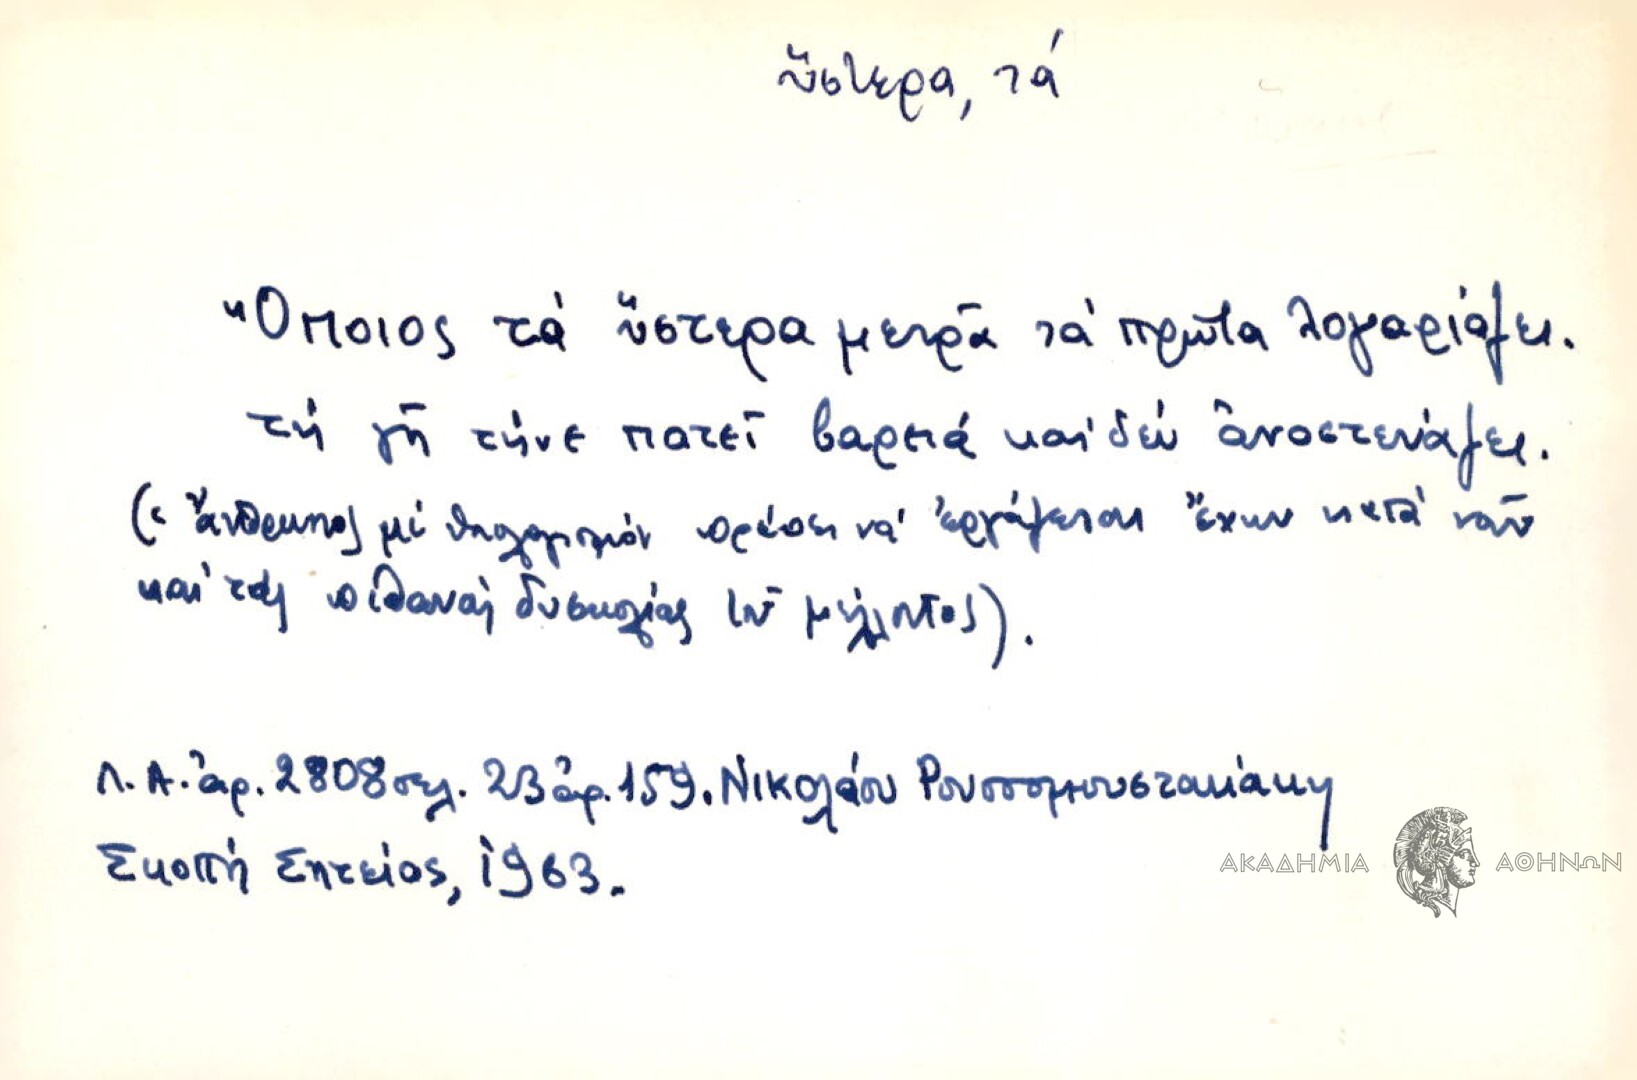 ὕστερα, τά
Ὅποιος τά ὕστερα μετρᾶ τά πρῶτα λογαριάζει.
τή γῆ τήνε πατεῖ βαρειά καί δέν ἀνεστενάζει.
(ὁ ἄνθρωπος μέ ὑπολογισμόν πρέπει νά ἐργάζεται ἔχων κατά νοῦν
καί τάς πιθανάς δυσκολίας τοῦ μέλλοντος).
Λ.Α. ἀρ. 2808 σελ. 23 ἀρ. 159. Νικολάου Ρουσσομουστακάκη
Σκοπή Σητείας, 1963.
ΑΚΑΔΗΜΙΑ ΑΘΗΝΩΝ